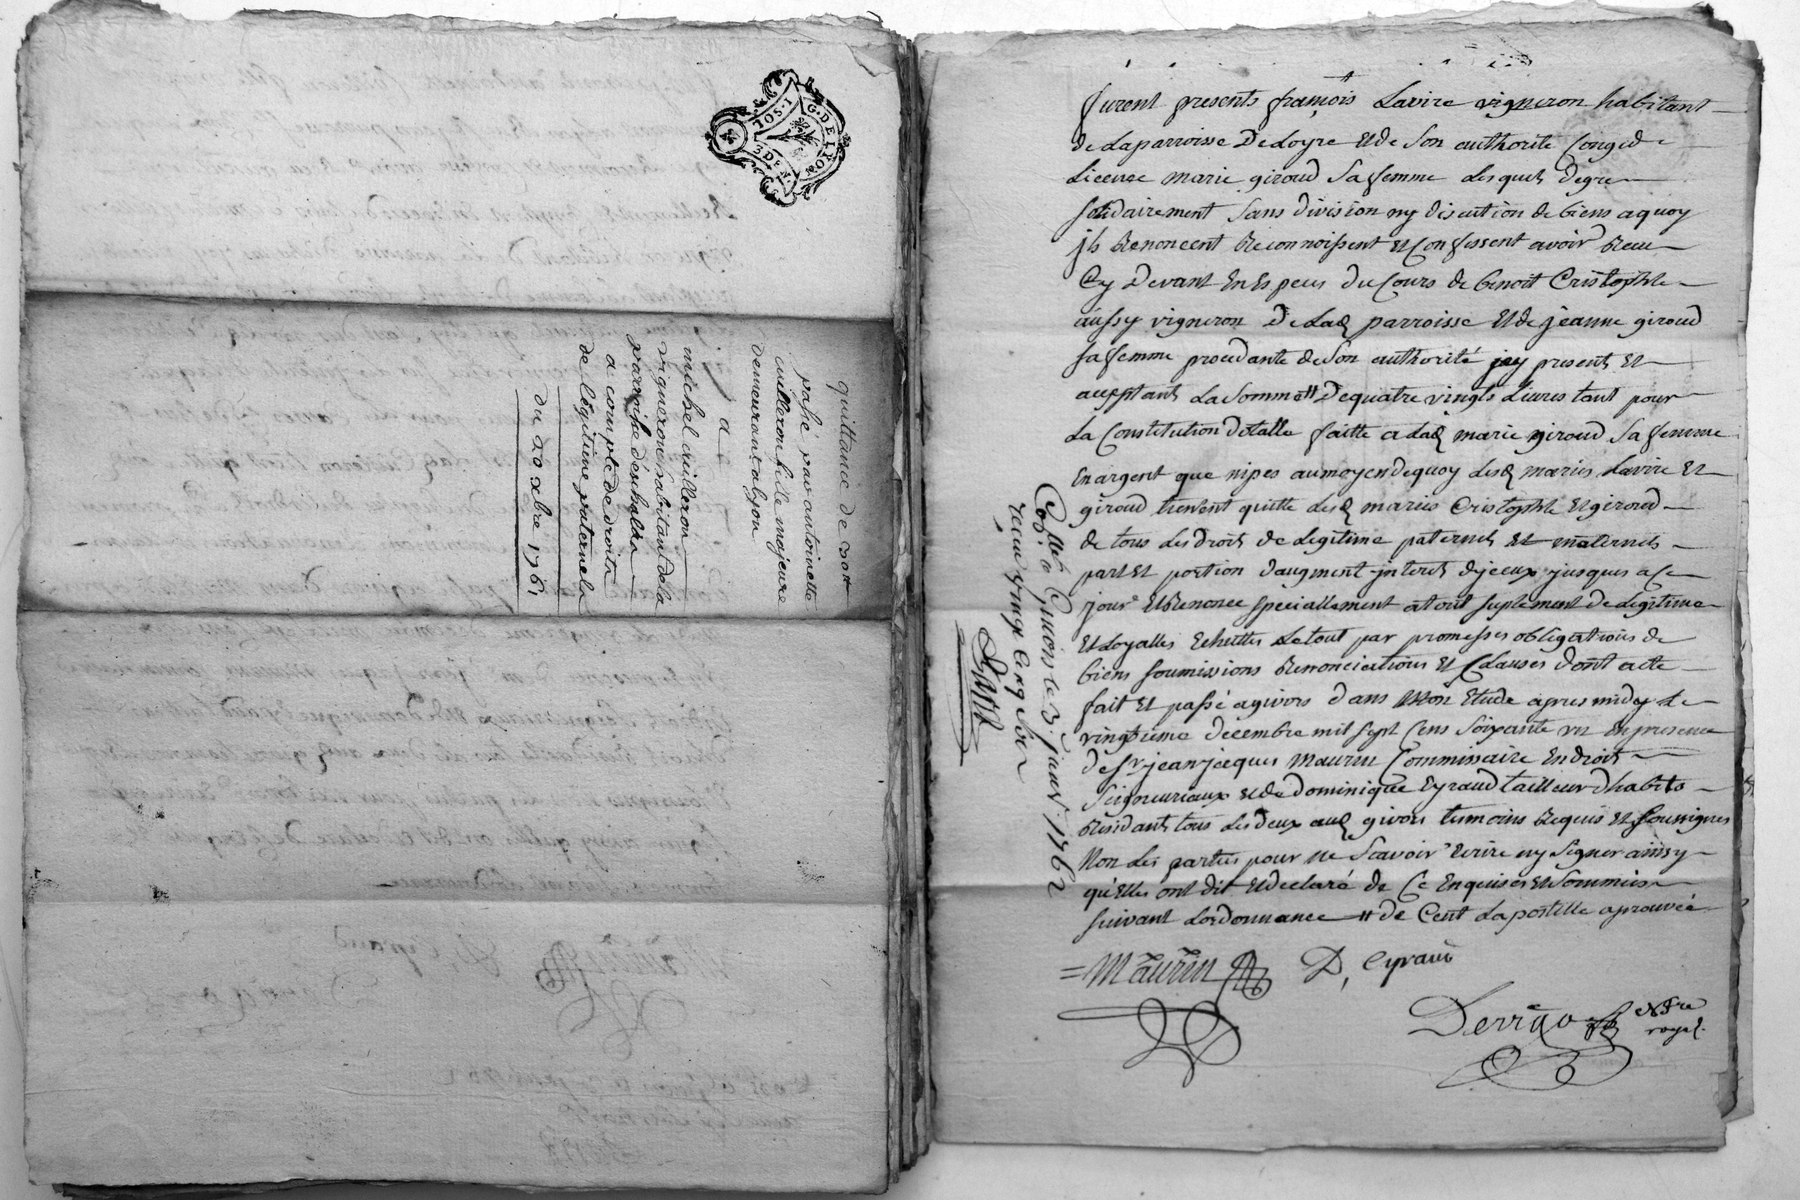 G. DE LYON
10S. 1
3 DEN.
quittance de 30tt
passé par antoinette
cuilleron fille majeure
demeurant a lyon
a
michel cuilleron
vigneron habitant de la
parroisse déschalas
a compte de droits
de légitime paternels
du 20 xbre 1761
furent presents françois Lavire vigneron habitant
de La parroisse De Loyre et de Son authorité Congé &
License marie giroud Sa femme Lesquels de gre
solidairement Sans division ny discution de biens a quoy
jls Renoncent Reconnoissent et Confessent avoir Recu
Cy Devant En Especes Du Cours de benoit Cristophle
aussy vigneron De Lad parroisse et de jeanne giroud
sa femme procedante de Son authorité jcy presents et
acceptants La Somme tt De quatre vingts Livres tant pour
La Constitution dotalle faitte a Lad marie giroud Sa femme
En argent que nipes au moyen de quoy Lesd mariés Lavire et
giroud tiennent quitte Lesd mariés Cristophle et giroud
de tous Les droits de Legitime paternels et maternels
part et portion d'augment jnterets d'jceux jusques a Ce
jour et Renonce spéciallement a tout suplement de Legitime
et Loyalles Echuttes Le tout par promesses obligations de
biens soumissions Renonciations et Clauses dont acte
fait et passé a givors dans Mon Etude apres midy Le
vingtieme décembre mil sept Cens Soixante un En presence
de Sr jean jacques Maurin Commissaire En droits
Seigneuriaux et de dominique Eyraud tailleur d'habits
Residants tous Les deux aud givors temoins Requis et Soussignes
Non Les parties pour ne Scavoir Ecrire ny Signer ainsy
qu'elles ont dit et declaré de Ce Enquises et Sommées
suivant Lordonnance tt de Cent La postille aprouvée
Maurin D, Eyraud
Derrieo Nre
royal
Collé a Givors le 3 janv. 1762
recu vingt cinq sols